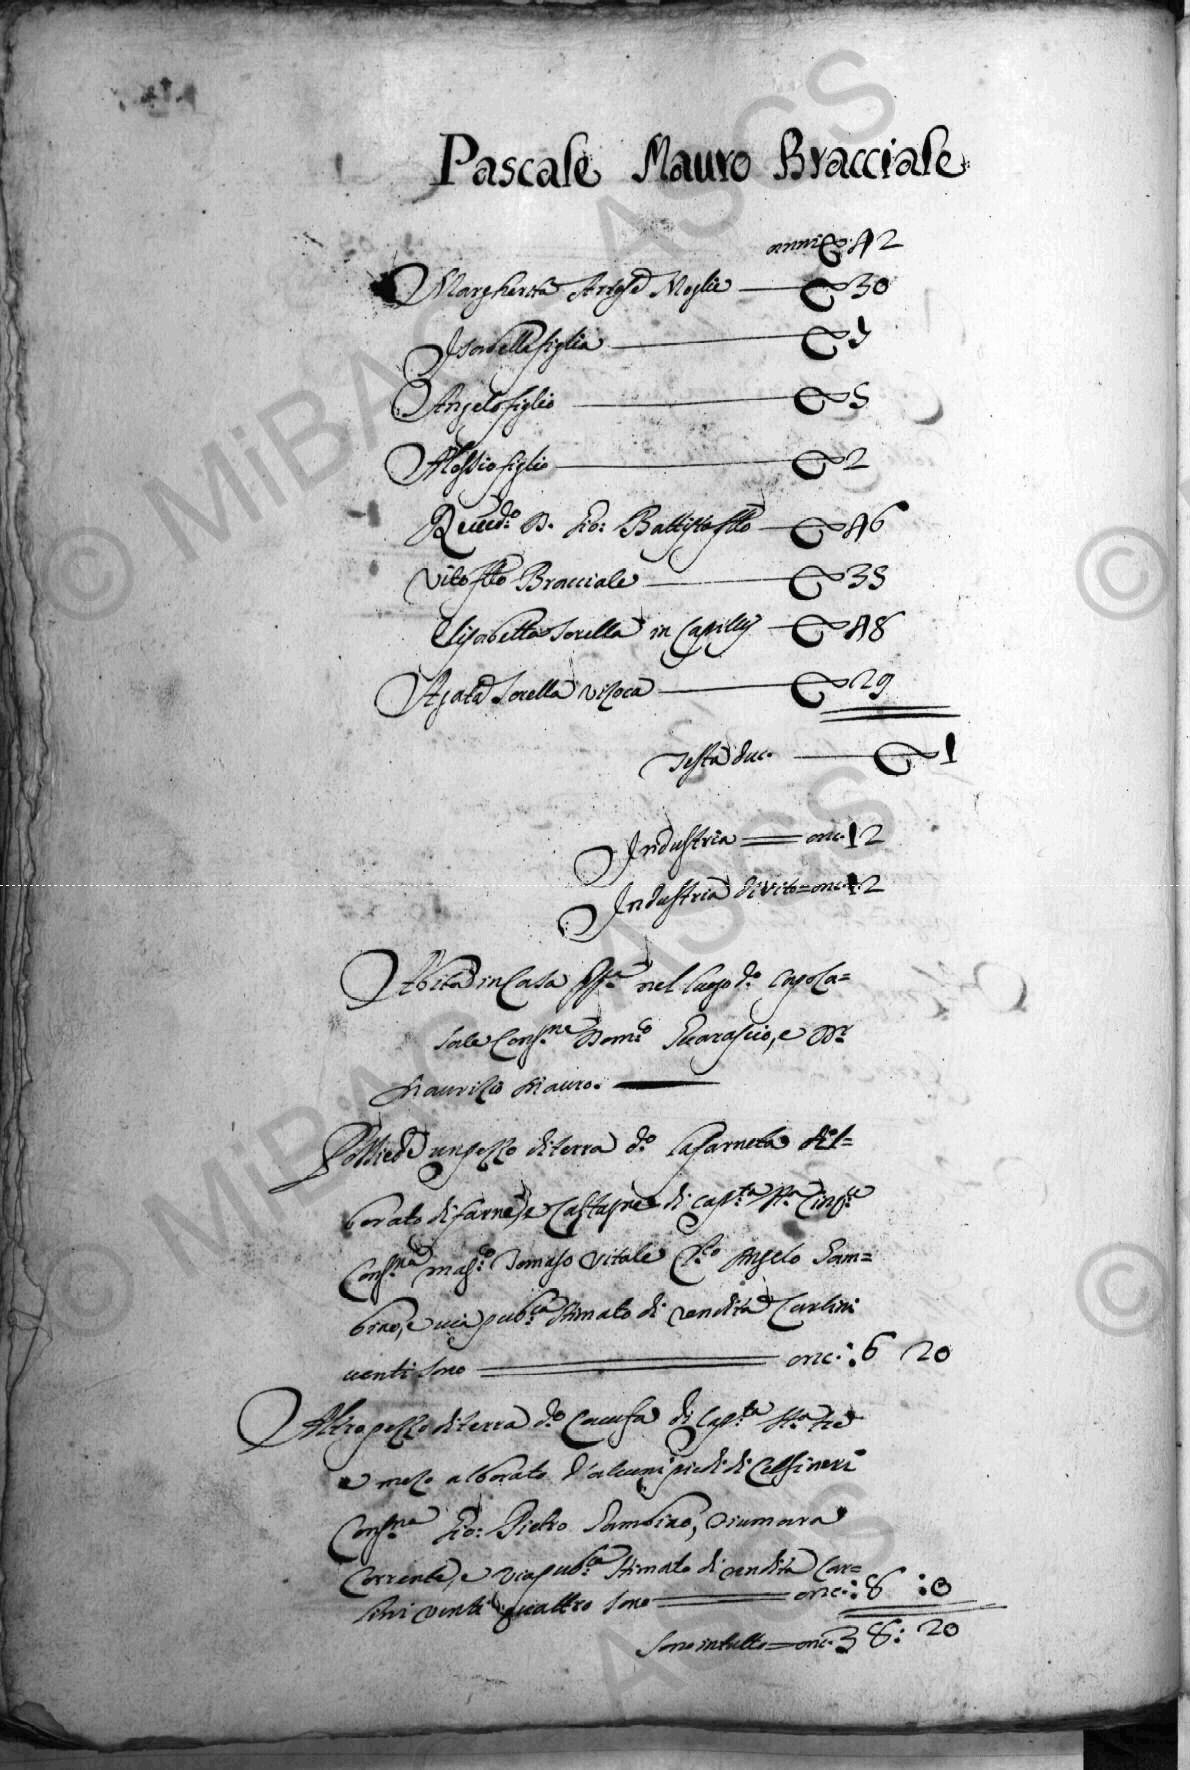 Pascale Mauro Bracciale
anni 42
Margherita Moglie 30
Isabella figlia
Angelo figlio 5
Alessio figlio 2
Reued.o D. Gio: Battista fllo 46
Vito fllo Bracciale 35
Elisabetta Sorella in Capillij 48
Agata Sorella vizoca 29
Testa duc. 1
Industria onc. 12
Industria di Vito = onc. 12
Abita in Casa ppa nel luogo d.o Capo Ca=
sale Conf.ne Dom.co Scarascio, e Dr.
Maurizio Mauro.
Possiede un pezzo di terra d.o la farneta
borato di farne, e Castagne di cap.ta
Conf.ne mag.co Tomaso Vitale Ch.co Angelo Sam=
biao, e via pub.ca stimato di rendita Carlini
venti sono onc.: 6 20
Altro pezzo di terra d.o di Cap.ta tre
e mezo alborato d'alcuni piedi di Celsi neri
Conf.ne Gio: Pietro Sambiao, Viumara
Corrente, e via pub.ca stimato di rendita Car=
lini venti quattro sono onc.: 8 : 0
Sono in tutto = onc. 38: 20
© MiBAC - ASCS
© MiBAC - ASCS